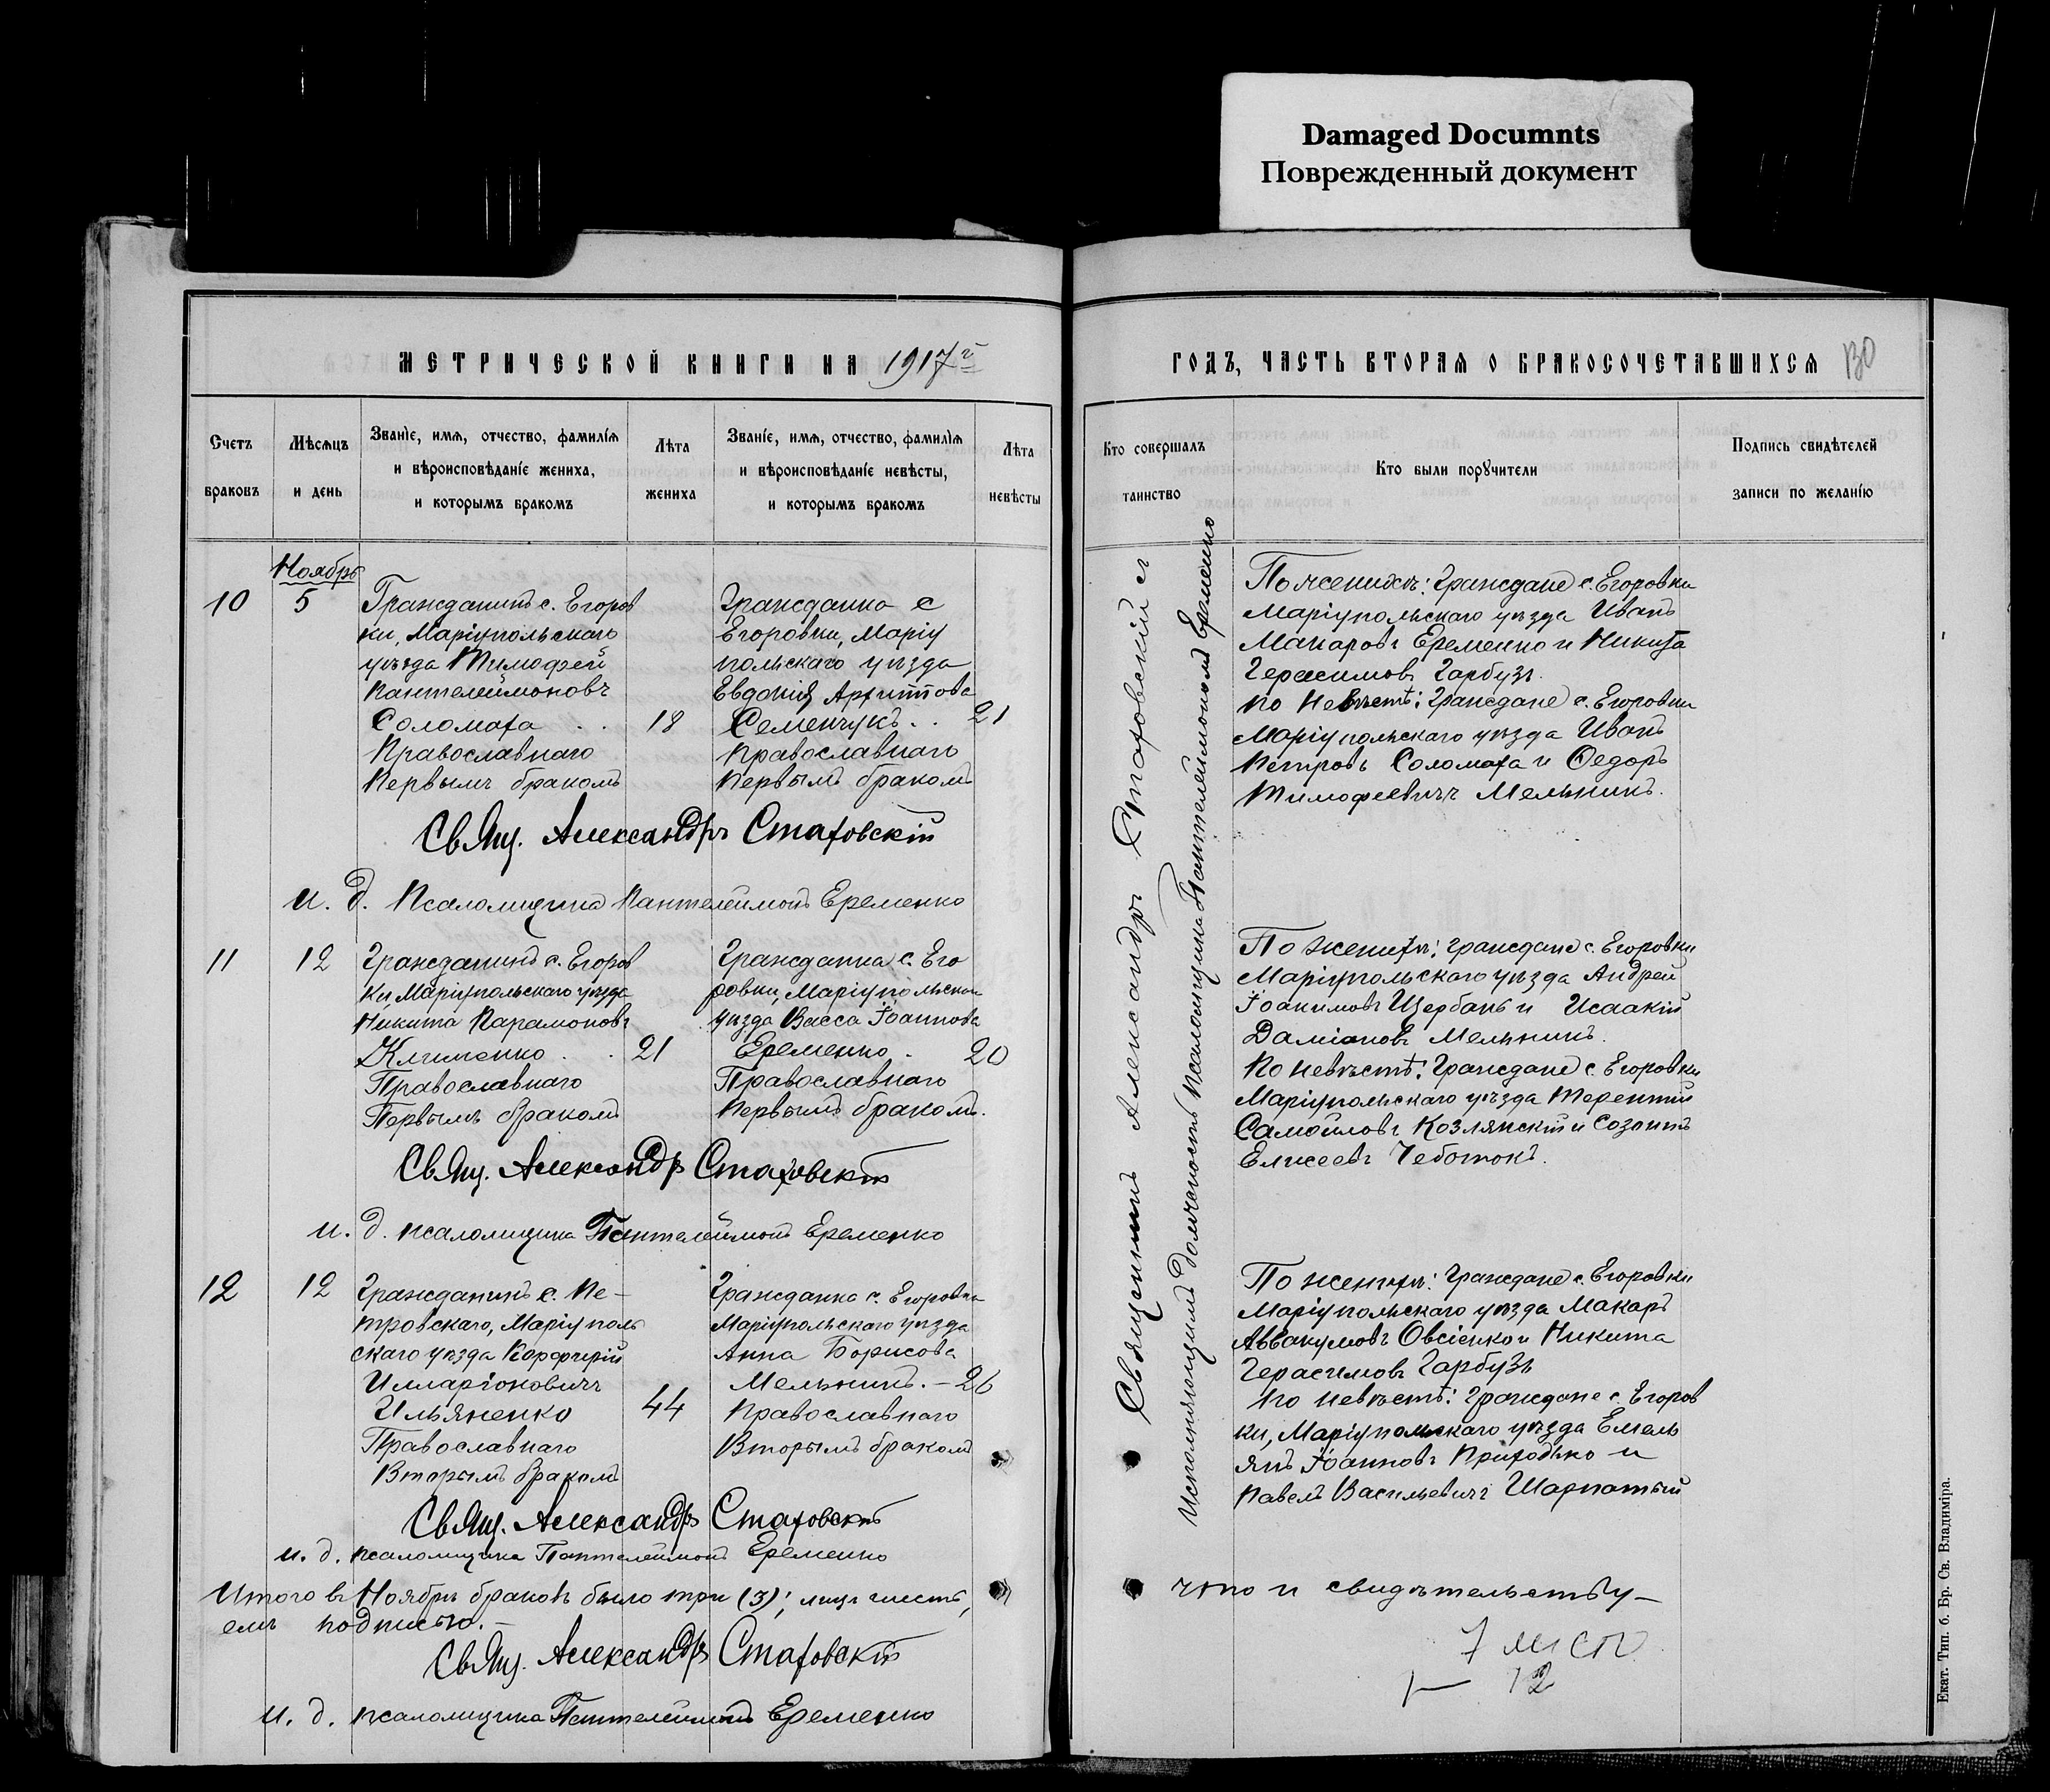 Damaged Documnts
Поврежденный документ
МЕТРИЧЕСКОЙ КНИГИ НА 1917 г
ГОДЪ, ЧАСТЬ ВТОРАЯ О БРАКОСОЧЕТАВШИХСЯ 130
Счетъ браковъ
Мѣсяцъ и день
Званіе, имя, отчество, фамилія
и вѣроисповѣданіе жениха,
и которымъ бракомъ
Лѣта жениха
Званіе, имя, отчество, фамилія
и вѣроисповѣданіе невѣсты,
и которымъ бракомъ
Лѣта невѣсты
Кто совершалъ таинство
Кто были поручители
Подпись свидѣтелей
записи по желанію
Ноябрь
10
5
Гражданинъ с. Егоров
ки, Маріупольскаго
уѣзда Тимофей
Пантелеймоновъ
Соломаха . .
Православнаго
Первымъ бракомъ
18
Гражданка с
Егоровки, Маріу
польскаго уѣзда
Евдокія
Семенчукъ . .
Православнаго
Первымъ бракомъ
21
Свящ. Александръ Стаховскій
и. д. Псаломщика Пантелеймонъ Еременко
11
12
Гражданинъ с. Егоров
ки, Маріупольскаго уѣзда
Никита Парамоновъ
Клименко . .
Православнаго
Первымъ бракомъ
21
Гражданка с. Его
ровки, Маріупольскаго
уѣзда Васса Іоаннова
Еременко .
Православнаго
Первымъ бракомъ.
20
Свящ. Александръ Стаховскій
и. д. псаломщика Пантелеймонъ Еременко
12
12
Гражданинъ с. Пе-
тровскаго, Маріуполь
скаго уѣзда Порфирій
Илларіоновичъ
Ильяненко
Православнаго
Вторымъ бракомъ
44
Гражданка с. Егоровки
Маріупольскаго уѣзда
Анна Борисова
Мельникъ. –
Православнаго
Вторымъ бракомъ
26
Свящ. Александръ Стаховскій
и. д. псаломщика Пантелеймонъ Еременко
Итого въ Ноябрѣ браковъ было три (3); лицъ шесть,
емъ подписью. –
Свящ. Александръ Стаховскій
и. д. псаломщика Пантелеймонъ Еременко
Священникъ Александръ Стаховскій и
Исполняющимъ должность Псаломщика Пантелеймономъ Еременко
По женихѣ: Граждане с. Егоровки
Маріупольскаго уѣзда Иванъ
Макаровъ Еременко и Никита
Герасимовъ Гарбузъ.
По Невѣстѣ: Граждане с. Егоровки
Маріупольскаго уѣзда Иванъ
Петровъ Соломаха и Федоръ
Тимофеевичъ Мельникъ.
По женихѣ: Граждане с. Егоровки
Маріупольскаго уѣзда Андрей
Іоакимовъ Щербань и Исаакій
Даміановъ Мельникъ.
По невѣстѣ: Граждане с. Егоровки
Маріупольскаго уѣзда Терентій
Самойловъ Козлянскій и Созонтъ
Елисеевъ Чеботокъ.
По женихѣ: Граждане с. Егоровки
Маріупольскаго уѣзда Макаръ
Аввакумовъ Овсіенко и Никита
Герасимовъ Гарбузъ
По невѣстѣ: Граждане с. Егоров
ки, Маріупольскаго уѣзда Емель
янъ Іоанновъ Приходько и
Павелъ Васильевичъ Шарпатый
что и свидѣтельству–
12
Екат. Тип. б. Бр. Св. Владиміра.